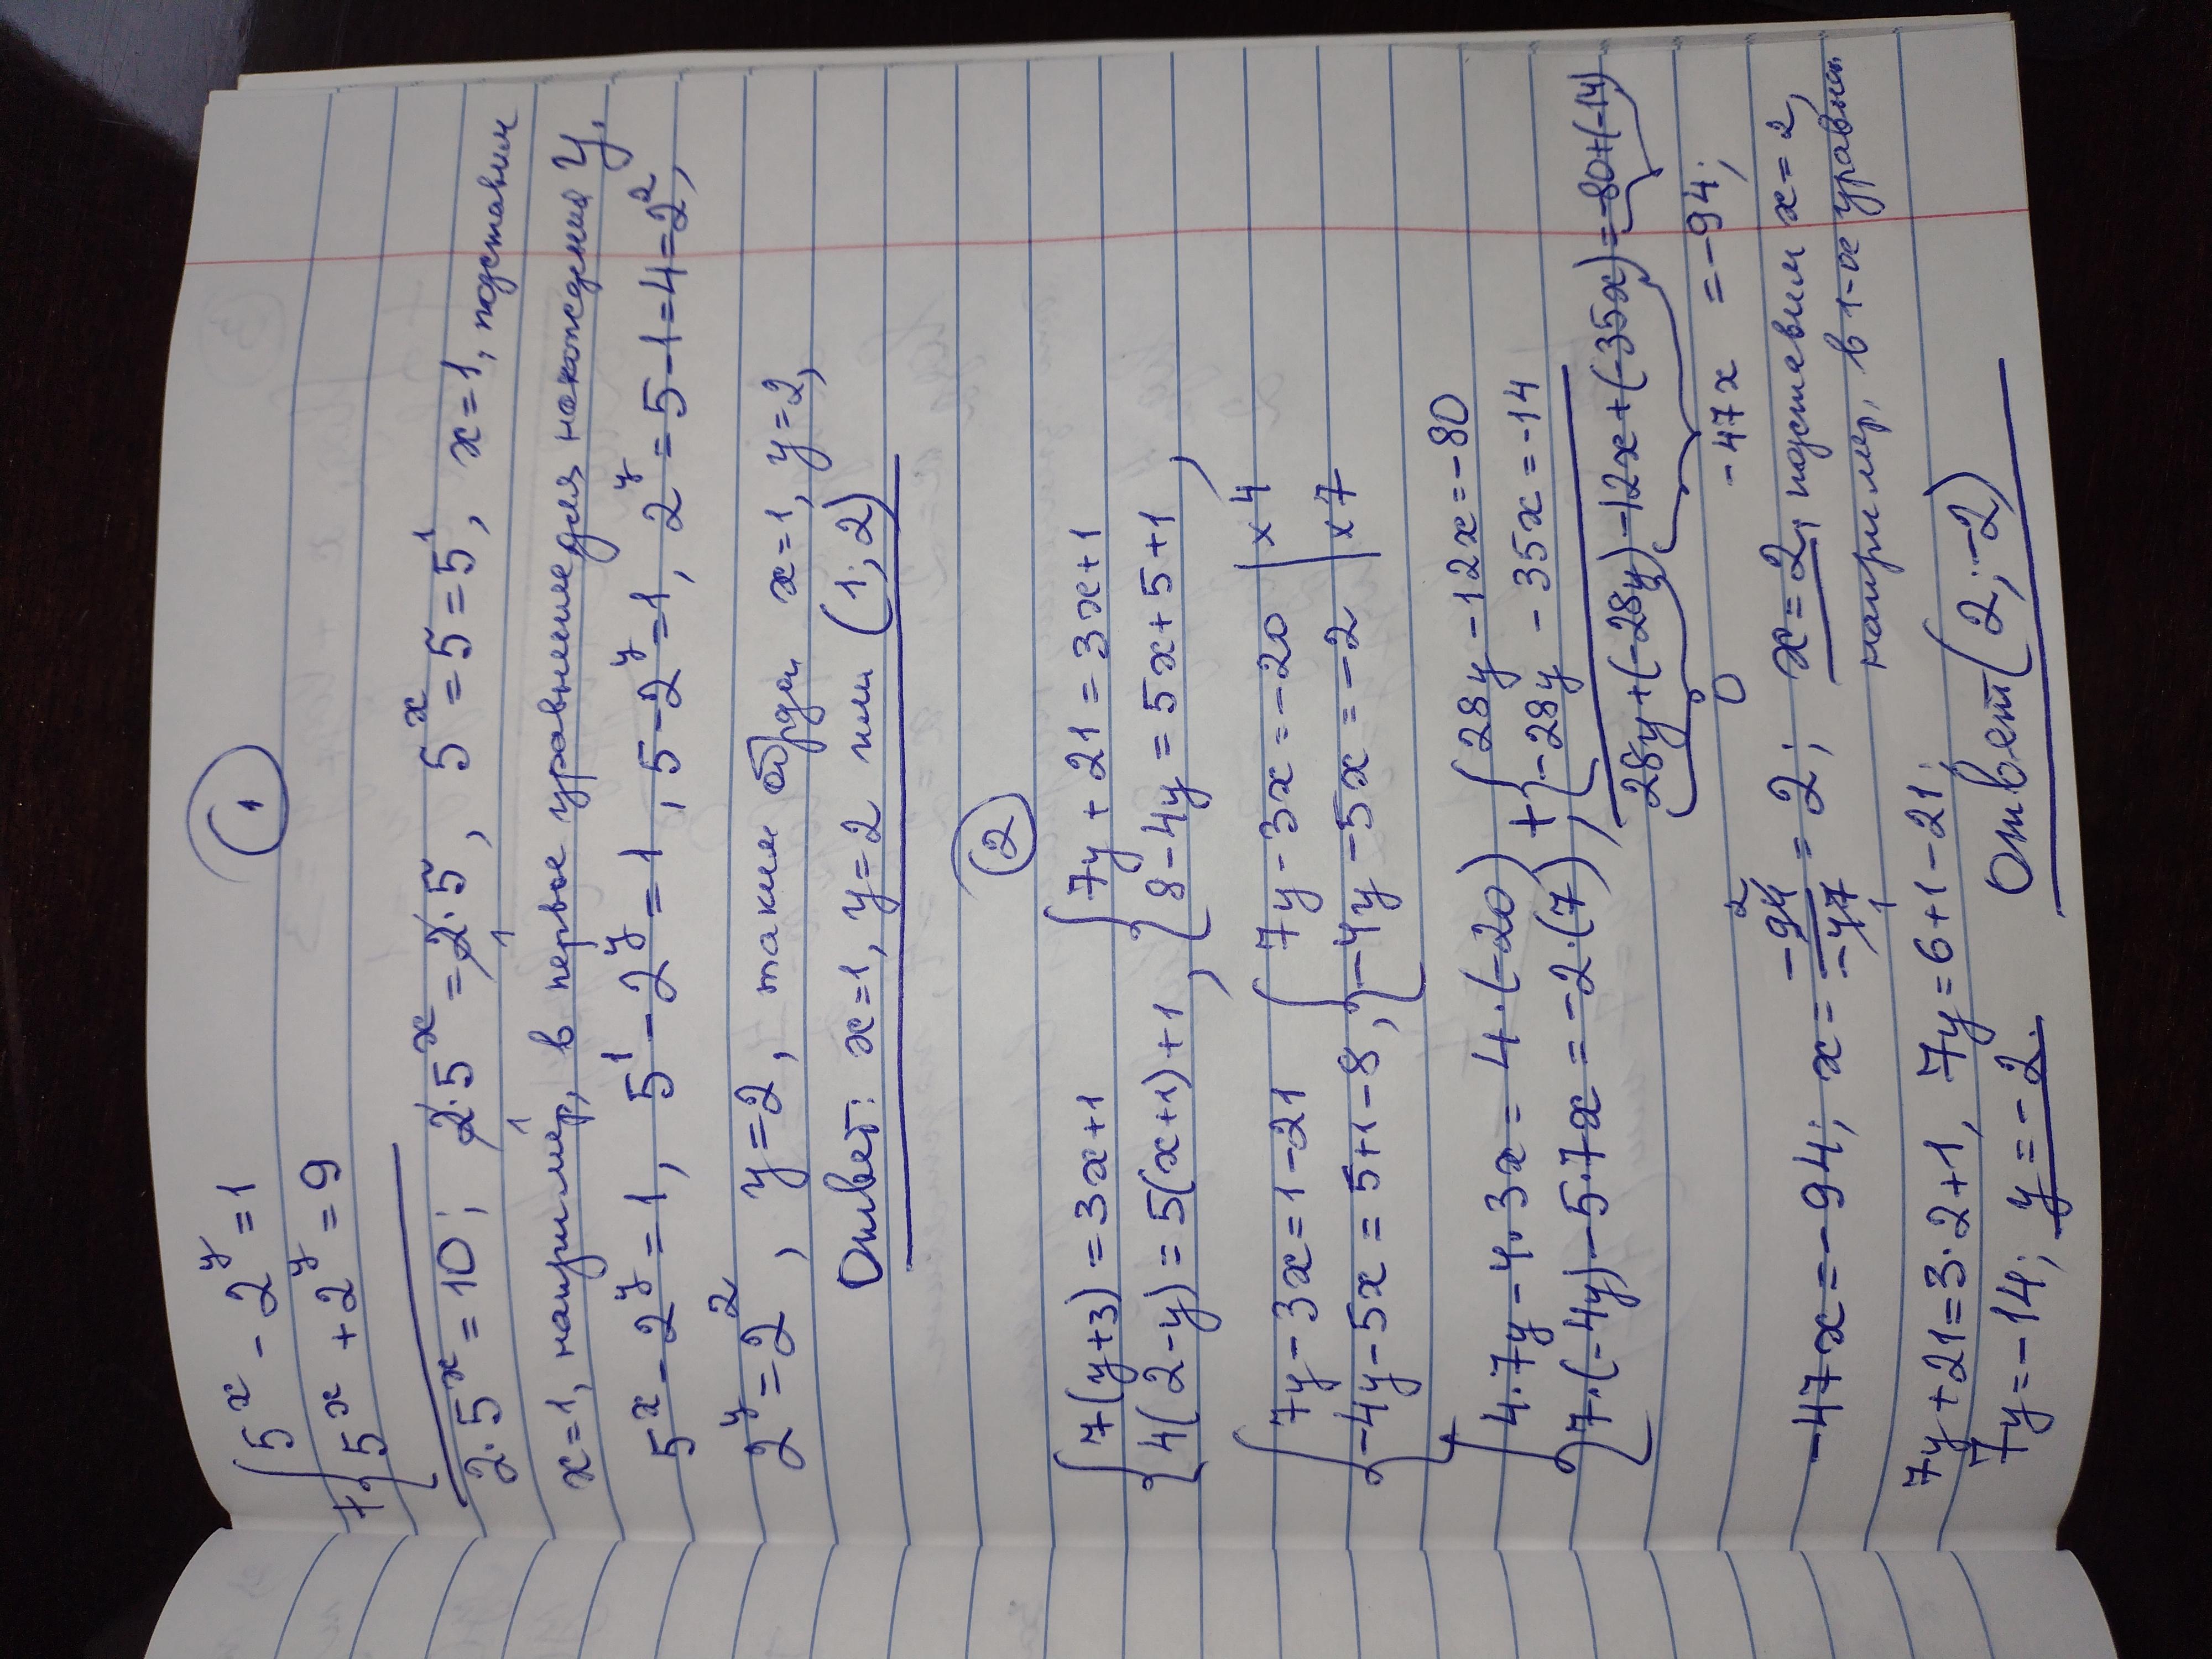 1
{ 5^x - 2^y = 1
+ { 5^x + 2^y = 9
2·5^x = 10; 2·5^x = 2·5, 5^x = 5 = 5^1, x = 1, подставим
x=1, например, в первое уравнение для нахождения y,
5^x - 2^y = 1, 5^1 - 2^y = 1, 5 - 2^y = 1, 2^y = 5 - 1 = 4 = 2^2,
2^y = 2^2, y = 2, таким образом x=1, y=2,
Ответ: x=1, y=2 или (1; 2)
2
{ 7(y+3) = 3x+1 { 7y + 21 = 3x+1
{ 4(2-y) = 5(x+1)+1, { 8 - 4y = 5x+5+1,
{ 7y - 3x = 1 - 21 { 7y - 3x = -20 | x 4
{ -4y - 5x = 5+1-8, { -4y - 5x = -2 | x 7
{ 4·7y - 4·3x = 4·(-20) { 28y - 12x = -80
{ 7·(-4y) - 5·7x = -2·(7), + { -28y - 35x = -14
28y+(-28y) -12x+(-35x) = -80+(-14)
0 -47x = -94;
-47x = -94; x = -94/-47 = 2; x=2, подставим x=2,
2 1
например, в 1-ое уравнен.
7y + 21 = 3·2+1, 7y = 6+1-21;
7y = -14; y = -2. Ответ (2; -2)